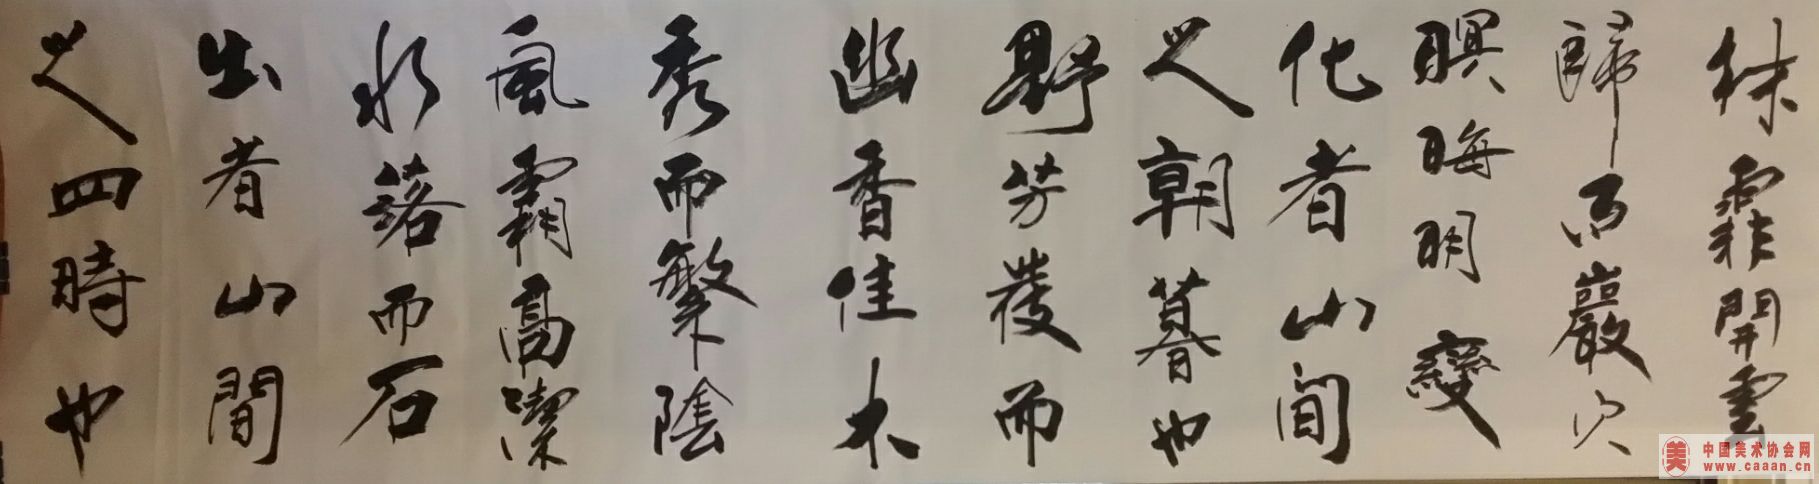 林霏開雲
歸而巖穴
暝晦明變
化者山间
之朝暮也
野芳發而
幽香佳木
秀而繁陰
風霜高潔
水落而石
出者山間
之四時也
中国美术协会网
www.caaan.cn